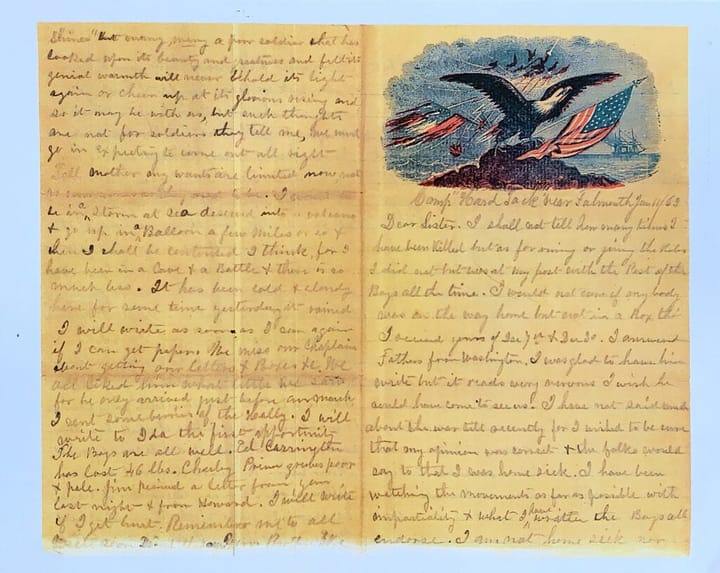 Shines" but many, many a poor soldier that has
looked upon its beauty and greatness and felt its
genial warmth will never behold its light
again or cheer up at its glorious rising and
so it may be with us, but such thoughts
are not for soldiers they tell me, we must
go in expecting to come out all right
Tell mother my wants are limited now not
I want to
be in a storm at sea descend into a volcano
& go up in a Balloon a few miles or so &
then I shall be contented I think, for I
have been in a Cave & a Battle & there is so
much less. It has been cold & cloudy
here for some time yesterday it rained
I will write as soon as I can again
if I can get paper. We miss our Chaplain
about getting our letters & Boxes &c. We
all liked him what little we saw
for he only arrived just before our march
I sent some berries of the Holly. I will
write to Ida the first opportunity
The Boys are all well. Ed Carrington
has lost 46 lbs. Charley grows poor
& pale. Jim received a letter from you
last night & from Howard. I will write
if I get hurt. Remember me to all
Camp "Hard Tack" near Falmouth Jan 11/63
Dear Sister. I shall not tell how many times I
have been killed but as for runing or giving the Rebs
I did not but was at my post with the Rest of the
Boys all the time. I would not care if any body
was on the way home but not in a Box tho
I received yours of Dec 7th & Dec 30. I answered
Fathers from Washington. I was glad to have him
write but it reads very nervous I wish he
could have come to see us. I have not said much
about the war till recently for I wished to be sure
that my opinion was correct & the folks would
say to that I was home sick. I have been
watching the movements as far as posible with
impartiality & what I have written the Boys all
endorse. I am not home sick nor